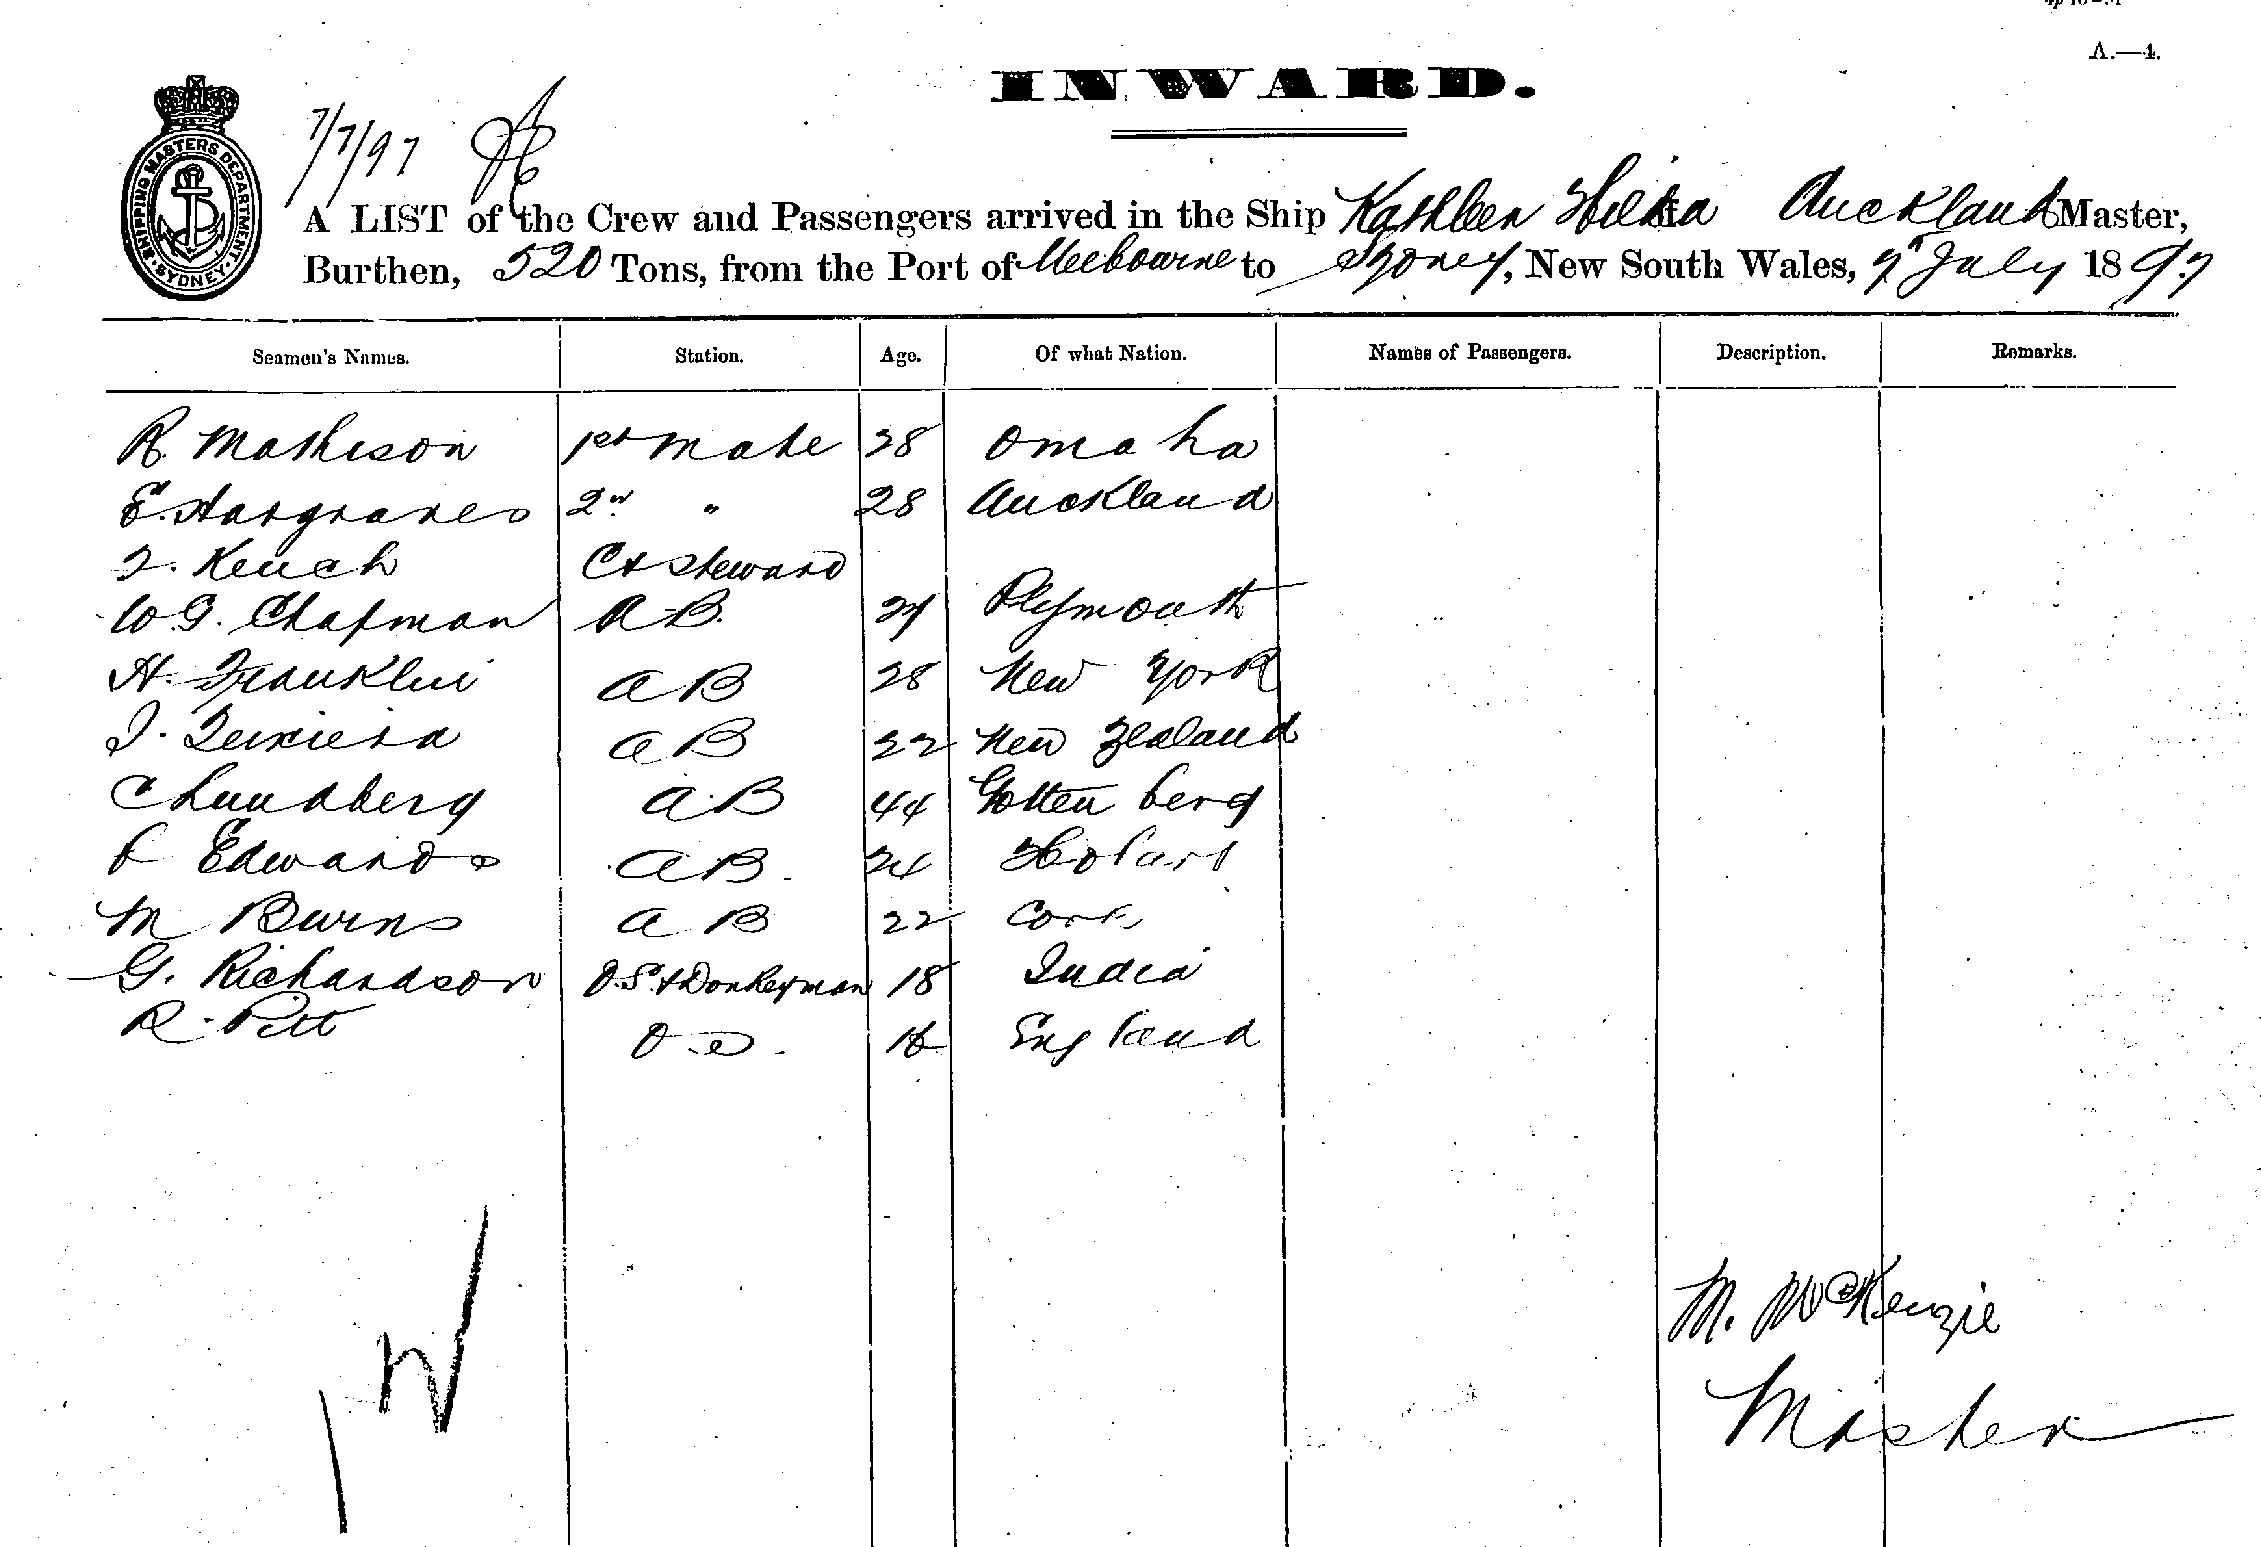 A.—4.
INWARD.
7/7/97
SHIPPING MASTERS DEPARTMENT. SYDNEY.
A LIST of the Crew and Passengers arrived in the Ship Kathleen Hilda Auckland Master,
Burthen, 520 Tons, from the Port of Melbourne to Sydney, New South Wales, 7th July 1897
Seamen's Names. Station. Age. Of what Nation. Names of Passengers. Description. Remarks.
R. Mathison 1st Mate 28 Omaha
E. Hargraves 2nd " 28 Auckland
Keuch Steward
W. G. Chapman A B. Plymouth
H. Franklin A B 28 New York
A B 22 New Zealand
C Lundberg A B 44 Gottenberg
Edwards A B. 24 Hobart
M Burns A B 22 Cork
G. Richardson O.S. & Donkeyman 18 India
R. Pitt England
M. McKenzie
Master